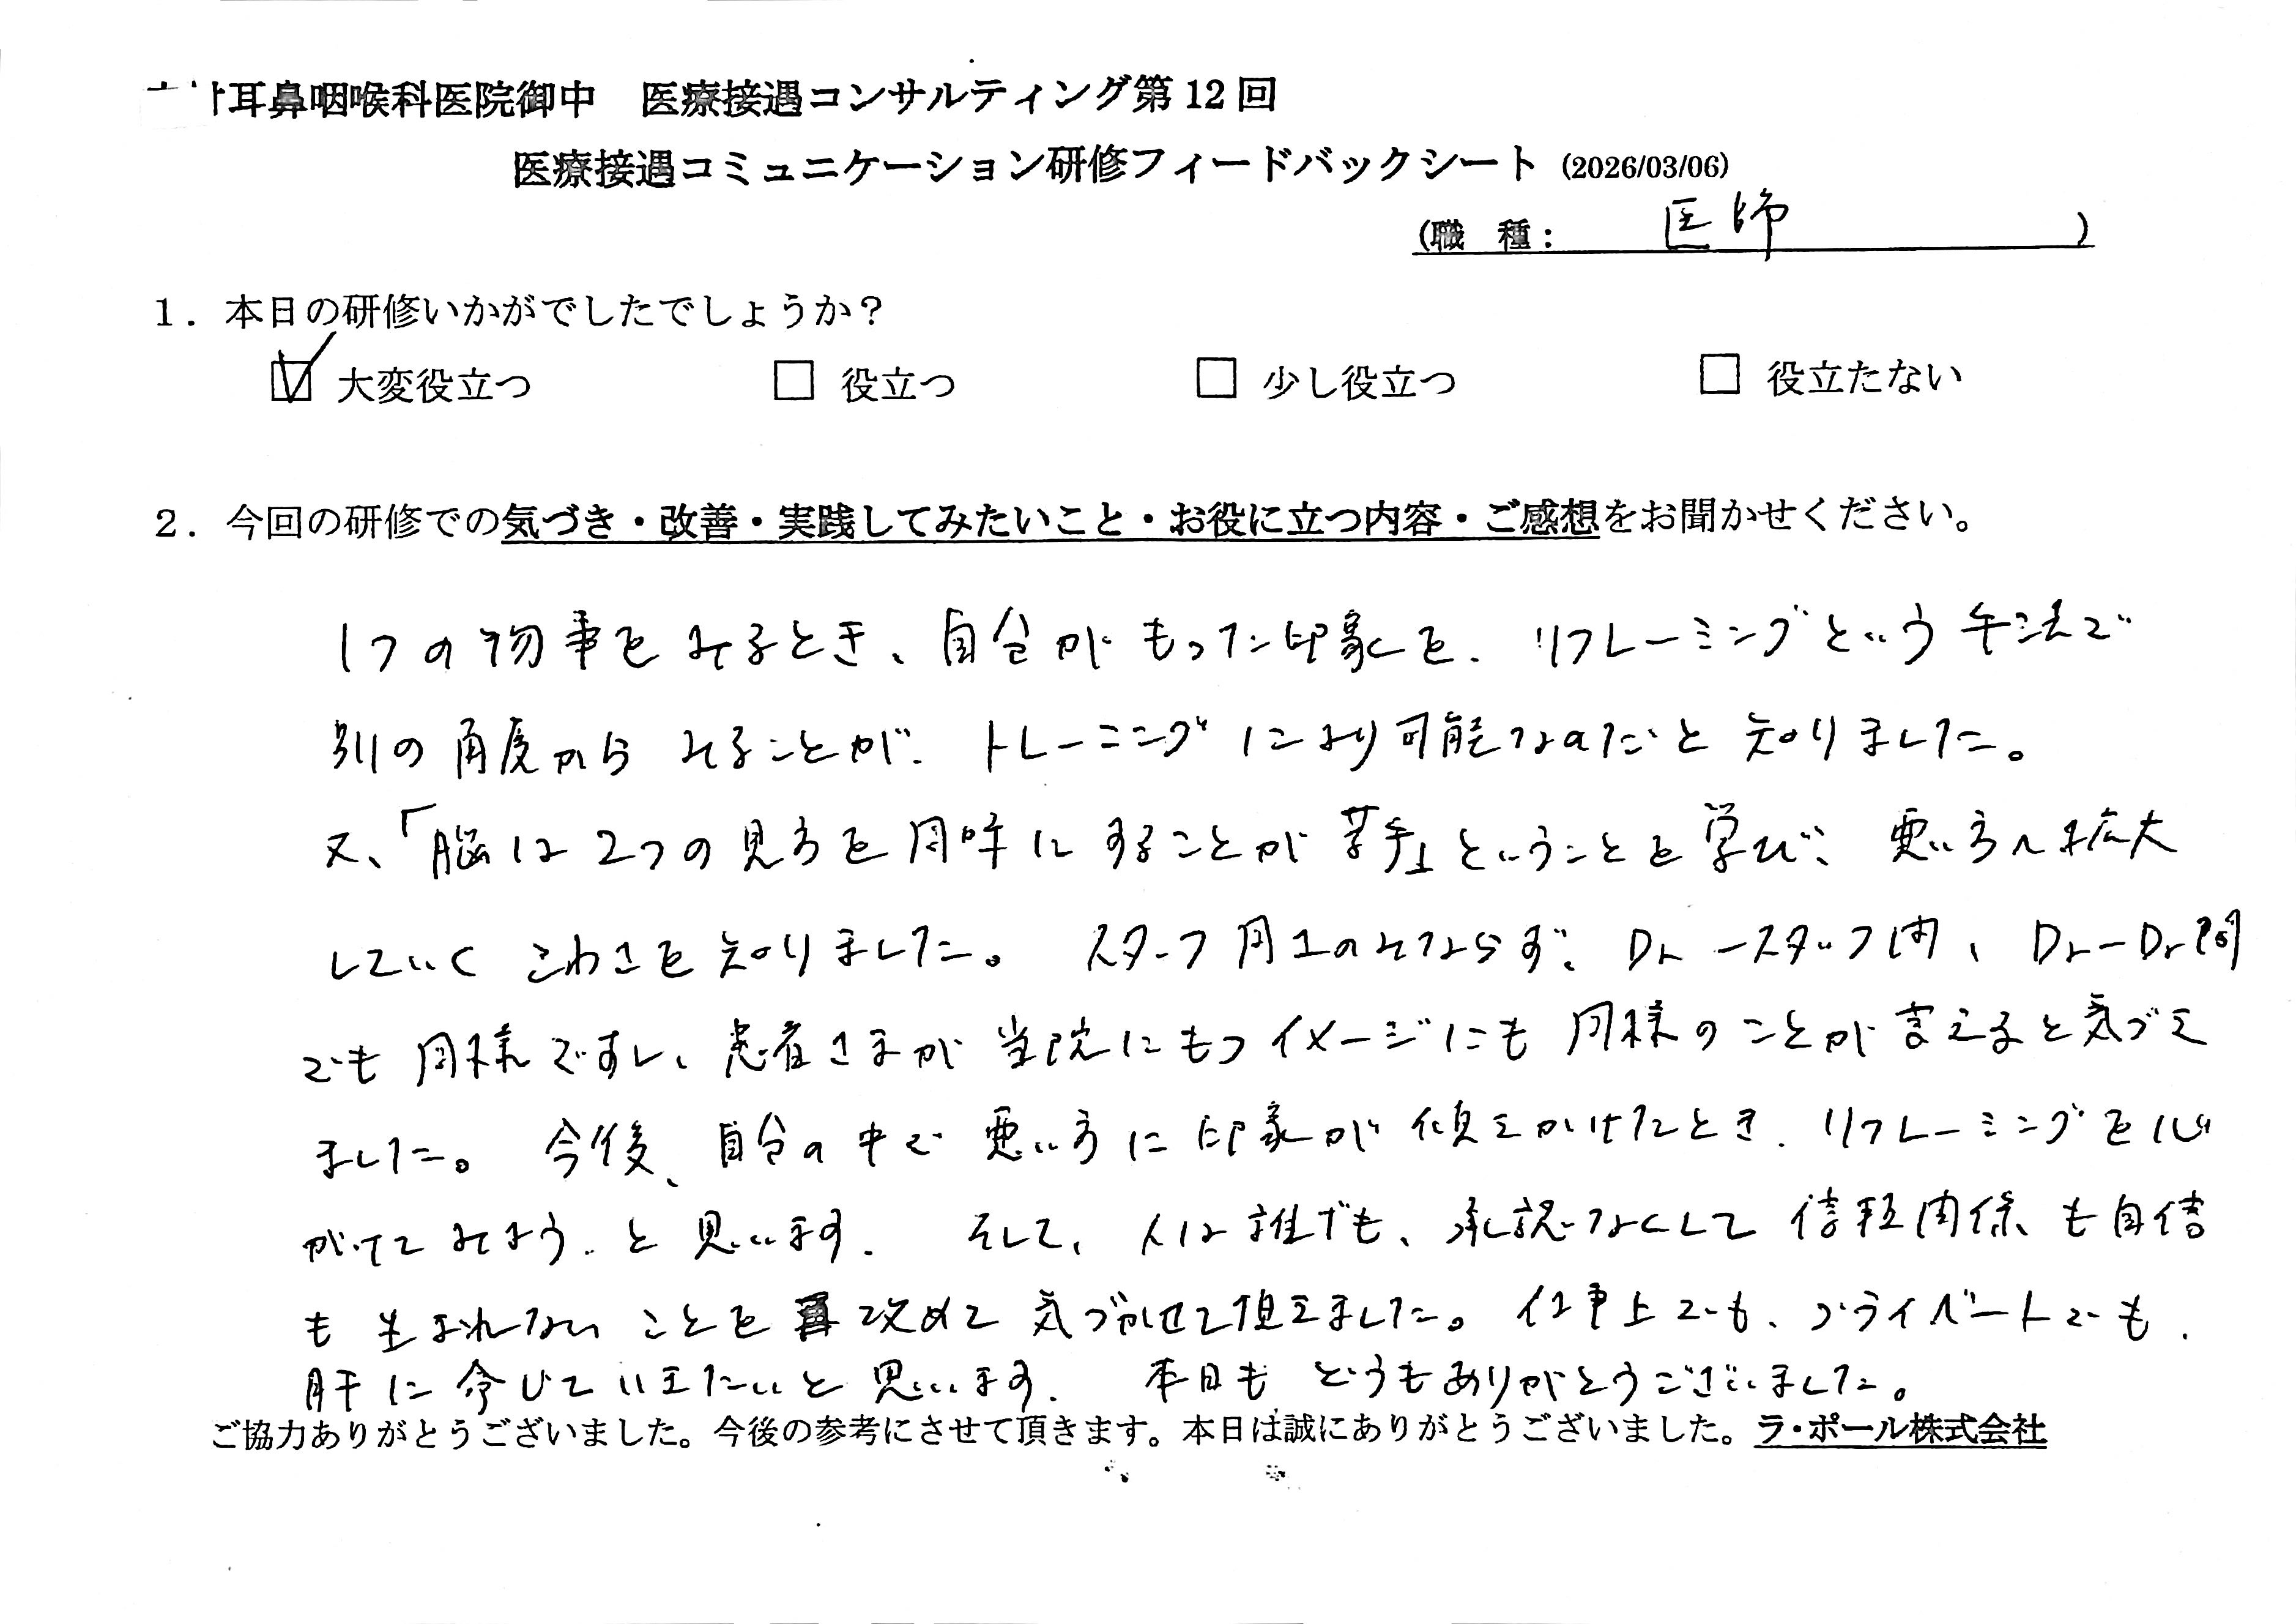 耳鼻咽喉科医院御中　医療接遇コンサルティング第12回
医療接遇コミュニケーション研修フィードバックシート (2026/03/06)
(職　種：　医師　)
1．本日の研修いかがでしたでしょうか？
☑ 大変役立つ　□ 役立つ　□ 少し役立つ　□ 役立たない
2．今回の研修での気づき・改善・実践してみたいこと・お役に立つ内容・ご感想をお聞かせください。
1つの物事をみるとき、自分がもった印象を、リフレーミングという手法で
別の角度からみることが、トレーニングにより可能なのだと知りました。
又、「脳は2つの見方を同時にすることが苦手」ということを学び、悪い方へ拡大
していくこわさを知りました。スタッフ同士のみならず、Dr－スタッフ間、Dr－Dr間
でも同様ですし、患者さまが当院にもつイメージにも同様のことが言えると気づき
ました。今後、自分の中で悪い方に印象が傾きかけたとき、リフレーミングを心
がけてみようと思います。そして、人は誰でも、承認なくして信頼関係も自信
も生まれないことを改めて気づかせて頂きました。仕事上でも、プライベートでも、
肝に命じていきたいと思います。本日もどうもありがとうございました。
ご協力ありがとうございました。今後の参考にさせて頂きます。本日は誠にありがとうございました。ラ・ポール株式会社